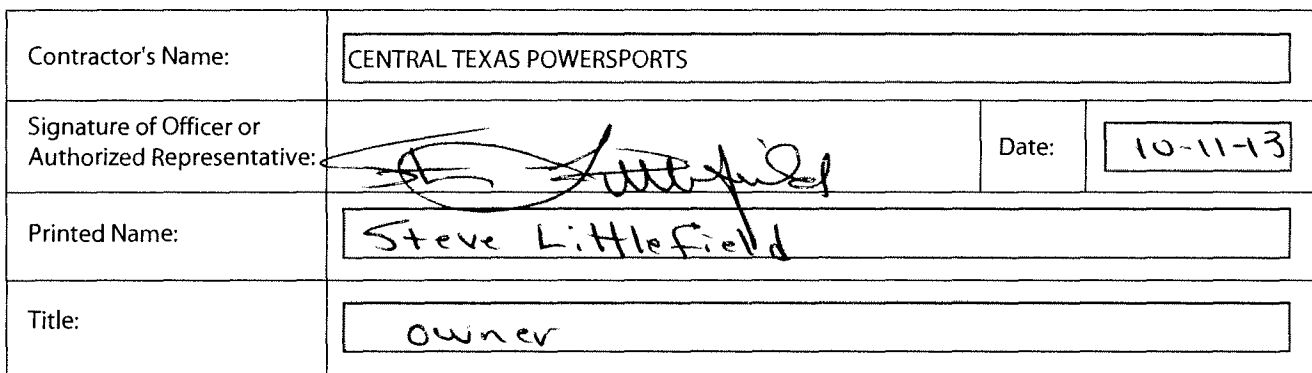 Contractor's Name: CENTRAL TEXAS POWERSPORTS
Signature of Officer or
Authorized Representative: Steve Littlefield Date: 10-11-13
Printed Name: Steve Littlefield
Title: owner